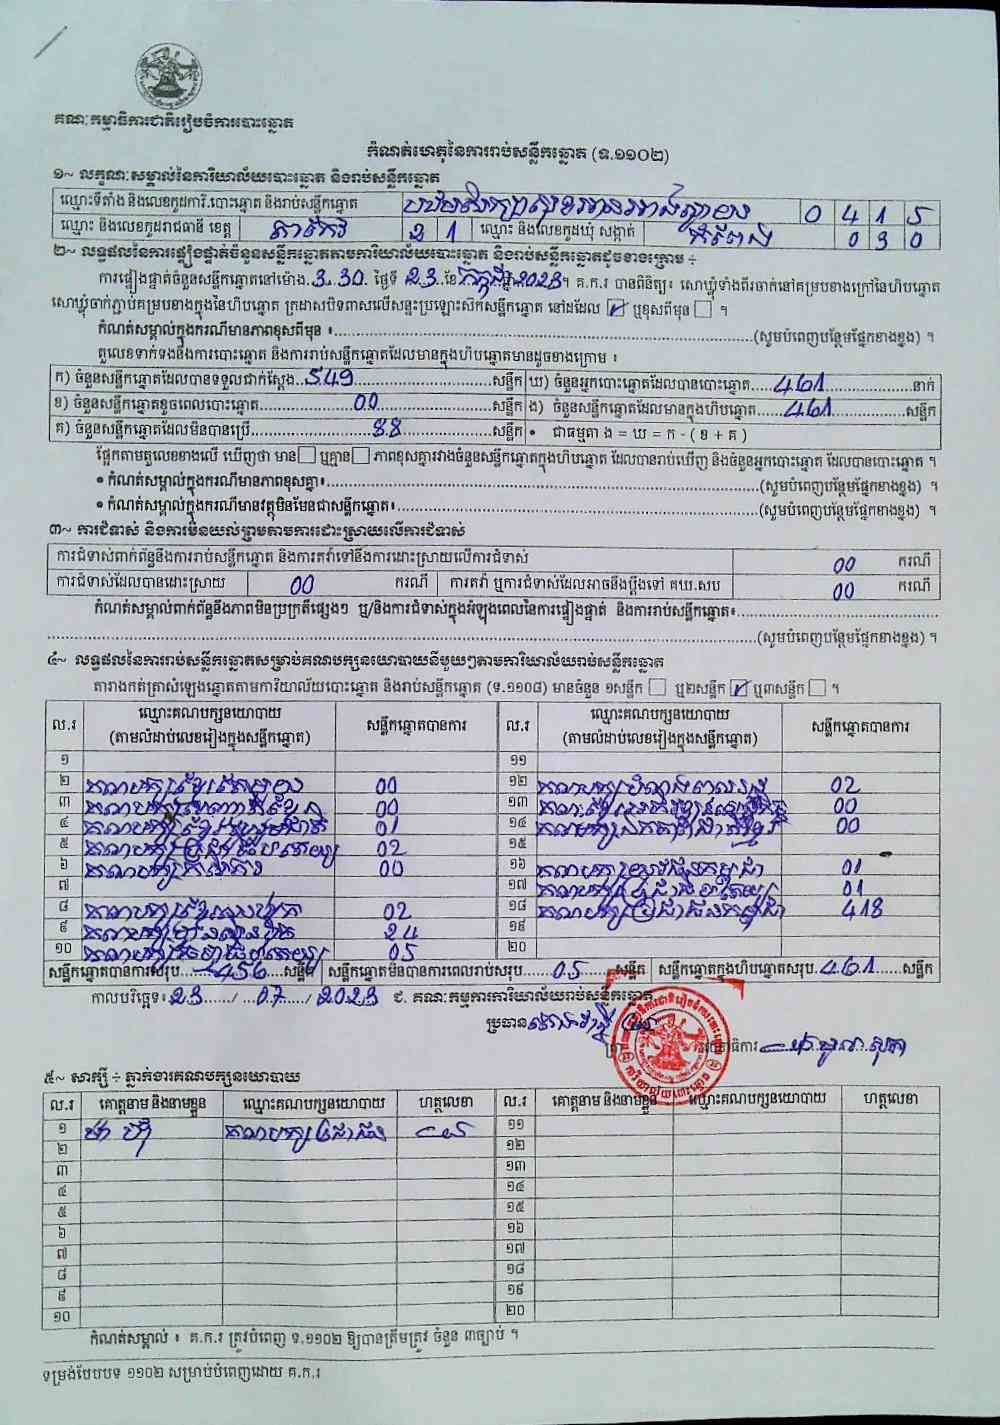 គណៈកម្មាធិការជាតិរៀបចំការបោះឆ្នោត
កំណត់ហេតុនៃការរាប់សន្លឹកឆ្នោត (ទ.១១០២)
១~ លក្ខណៈសម្គាល់នៃការិយាល័យបោះឆ្នោត និងរាប់សន្លឹកឆ្នោត
ឈ្មោះទីតាំង និងលេខកូដការិ.បោះឆ្នោត និងរាប់សន្លឹកឆ្នោត 0 4 1 5
ឈ្មោះ និងលេខកូដរាជធានី ខេត្ត តាកែវ 2 1 ឈ្មោះ និងលេខកូដឃុំ សង្កាត់ 0 3 0
២~ លទ្ធផលនៃការផ្ទៀងផ្ទាត់ចំនួនសន្លឹកឆ្នោតតាមការិយាល័យបោះឆ្នោត និងរាប់សន្លឹកឆ្នោតដូចខាងក្រោម ÷
ការផ្ទៀងផ្ទាត់ចំនួនសន្លឹកឆ្នោតនៅម៉ោង 3.30 ថ្ងៃទី 23 ខែ កក្កដា ឆ្នាំ 2023 ។ គ.ក.រ បានពិនិត្យ៖ សោឃ្លុំទាំងពីរចាក់នៅគម្របខាងក្រៅនៃហិបឆ្នោត
សោឃ្លុំចាក់ភ្ជាប់គម្របខាងក្នុងនៃហិបឆ្នោត ក្រដាសបិទពាសលើសន្ទះប្រឡោះស៊កសន្លឹកឆ្នោត នៅដដែល ☑ ឬខុសពីមុន ☐ ។
កំណត់សម្គាល់ក្នុងករណីមានភាពខុសពីមុន ៖ (សូមបំពេញបន្ថែមផ្នែកខាងខ្នង) ។
តួលេខទាក់ទងនឹងការបោះឆ្នោត និងការរាប់សន្លឹកឆ្នោតដែលមានក្នុងហិបឆ្នោតមានដូចខាងក្រោម ៖
ក) ចំនួនសន្លឹកឆ្នោតដែលបានទទួលជាក់ស្តែង 549 សន្លឹក ឃ) ចំនួនអ្នកបោះឆ្នោតដែលបានបោះឆ្នោត 461 នាក់
ខ) ចំនួនសន្លឹកឆ្នោតខូចពេលបោះឆ្នោត 00 សន្លឹក ង) ចំនួនសន្លឹកឆ្នោតដែលមានក្នុងហិបឆ្នោត 461 សន្លឹក
គ) ចំនួនសន្លឹកឆ្នោតដែលមិនបានប្រើ 88 សន្លឹក • ជាធម្មតា ង = ឃ = ក - ( ខ + គ )
ផ្អែកតាមតួលេខខាងលើ ឃើញថា មាន ☐ ឬគ្មាន ☐ ភាពខុសគ្នារវាងចំនួនសន្លឹកឆ្នោតក្នុងហិបឆ្នោត ដែលបានរាប់ឃើញ និងចំនួនអ្នកបោះឆ្នោត ដែលបានបោះឆ្នោត ។
• កំណត់សម្គាល់ក្នុងករណីមានភាពខុសគ្នា៖ (សូមបំពេញបន្ថែមផ្នែកខាងខ្នង) ។
• កំណត់សម្គាល់ក្នុងករណីមានវត្ថុមិនមែនជាសន្លឹកឆ្នោត៖ (សូមបំពេញបន្ថែមផ្នែកខាងខ្នង) ។
៣~ ការជំទាស់ និងការមិនយល់ព្រមតាមការដោះស្រាយលើការជំទាស់
ការជំទាស់ពាក់ព័ន្ធនឹងការរាប់សន្លឹកឆ្នោត និងការតវ៉ាទៅនឹងការដោះស្រាយលើការជំទាស់ 00 ករណី
ការជំទាស់ដែលបានដោះស្រាយ 00 ករណី ការតវ៉ា ឬការជំទាស់ដែលអាចនឹងប្តឹងទៅ គឃ.សប 00 ករណី
កំណត់សម្គាល់ពាក់ព័ន្ធនឹងភាពមិនប្រក្រតីផ្សេងៗ ឬ/និងការជំទាស់ក្នុងអំឡុងពេលនៃការផ្ទៀងផ្ទាត់ និងការរាប់សន្លឹកឆ្នោត៖
(សូមបំពេញបន្ថែមផ្នែកខាងខ្នង) ។
៤~ លទ្ធផលនៃការរាប់សន្លឹកឆ្នោតសម្រាប់គណបក្សនយោបាយនីមួយៗតាមការិយាល័យរាប់សន្លឹកឆ្នោត
តារាងកត់ត្រាសំឡេងឆ្នោតតាមការិយាល័យបោះឆ្នោត និងរាប់សន្លឹកឆ្នោត (ទ.១១០៨) មានចំនួន ១សន្លឹក ☐ ឬ២សន្លឹក ☑ ឬ៣សន្លឹក ☐ ។
ល.រ ឈ្មោះគណបក្សនយោបាយ (តាមលំដាប់លេខរៀងក្នុងសន្លឹកឆ្នោត) សន្លឹកឆ្នោតបានការ ល.រ ឈ្មោះគណបក្សនយោបាយ (តាមលំដាប់លេខរៀងក្នុងសន្លឹកឆ្នោត) សន្លឹកឆ្នោតបានការ
១ ១១
២ 00 ១២ 02
៣ 00 ១៣ 00
៤ 01 ១៤ 00
៥ 02 ១៥
៦ 00 ១៦ 01
៧ ១៧ 01
៨ 02 ១៨ គណបក្សប្រជាជនកម្ពុជា 418
៩ 24 ១៩
១០ 05 ២០
សន្លឹកឆ្នោតបានការសរុប 456 សន្លឹក សន្លឹកឆ្នោតមិនបានការពេលរាប់សរុប 05 សន្លឹក សន្លឹកឆ្នោតក្នុងហិបឆ្នោតសរុប 461 សន្លឹក
កាលបរិច្ឆេទ៖ 23 / 07 / 2023 ជ. គណៈកម្មការការិយាល័យរាប់សន្លឹកឆ្នោត
ប្រធាន
៥~ សាក្សី ÷ ភ្នាក់ងារគណបក្សនយោបាយ
ល.រ គោត្តនាម និងនាមខ្លួន ឈ្មោះគណបក្សនយោបាយ ហត្ថលេខា ល.រ គោត្តនាម និងនាមខ្លួន ឈ្មោះគណបក្សនយោបាយ ហត្ថលេខា
១ គណបក្សប្រជាជន ១១
២ ១២
៣ ១៣
៤ ១៤
៥ ១៥
៦ ១៦
៧ ១៧
៨ ១៨
៩ ១៩
១០ ២០
កំណត់សម្គាល់ ៖ គ.ក.រ ត្រូវបំពេញ ទ.១១០២ ឱ្យបានត្រឹមត្រូវ ចំនួន ៣ច្បាប់ ។
ទម្រង់បែបបទ ១១០២ សម្រាប់បំពេញដោយ គ.ក.រ